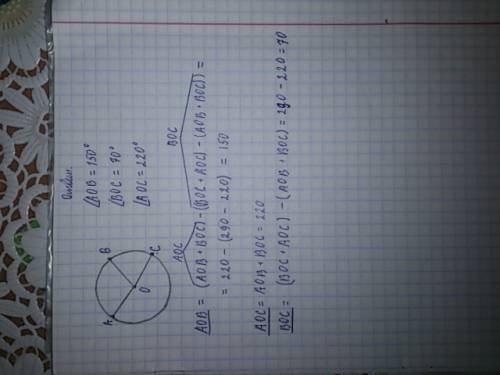 A
B
C
O
Ответ:
∠AOB = 150°
∠BOC = 70°
∠AOC = 220°
AOC
BOC
AOB = (AOB + BOC) - (BOC + AOC) - (AOB + BOC)) =
= 220 - (290 - 220) = 150
AOC = AOB + BOC = 220
BOC = (BOC + AOC) - (AOB + BOC) = 290 - 220 = 70